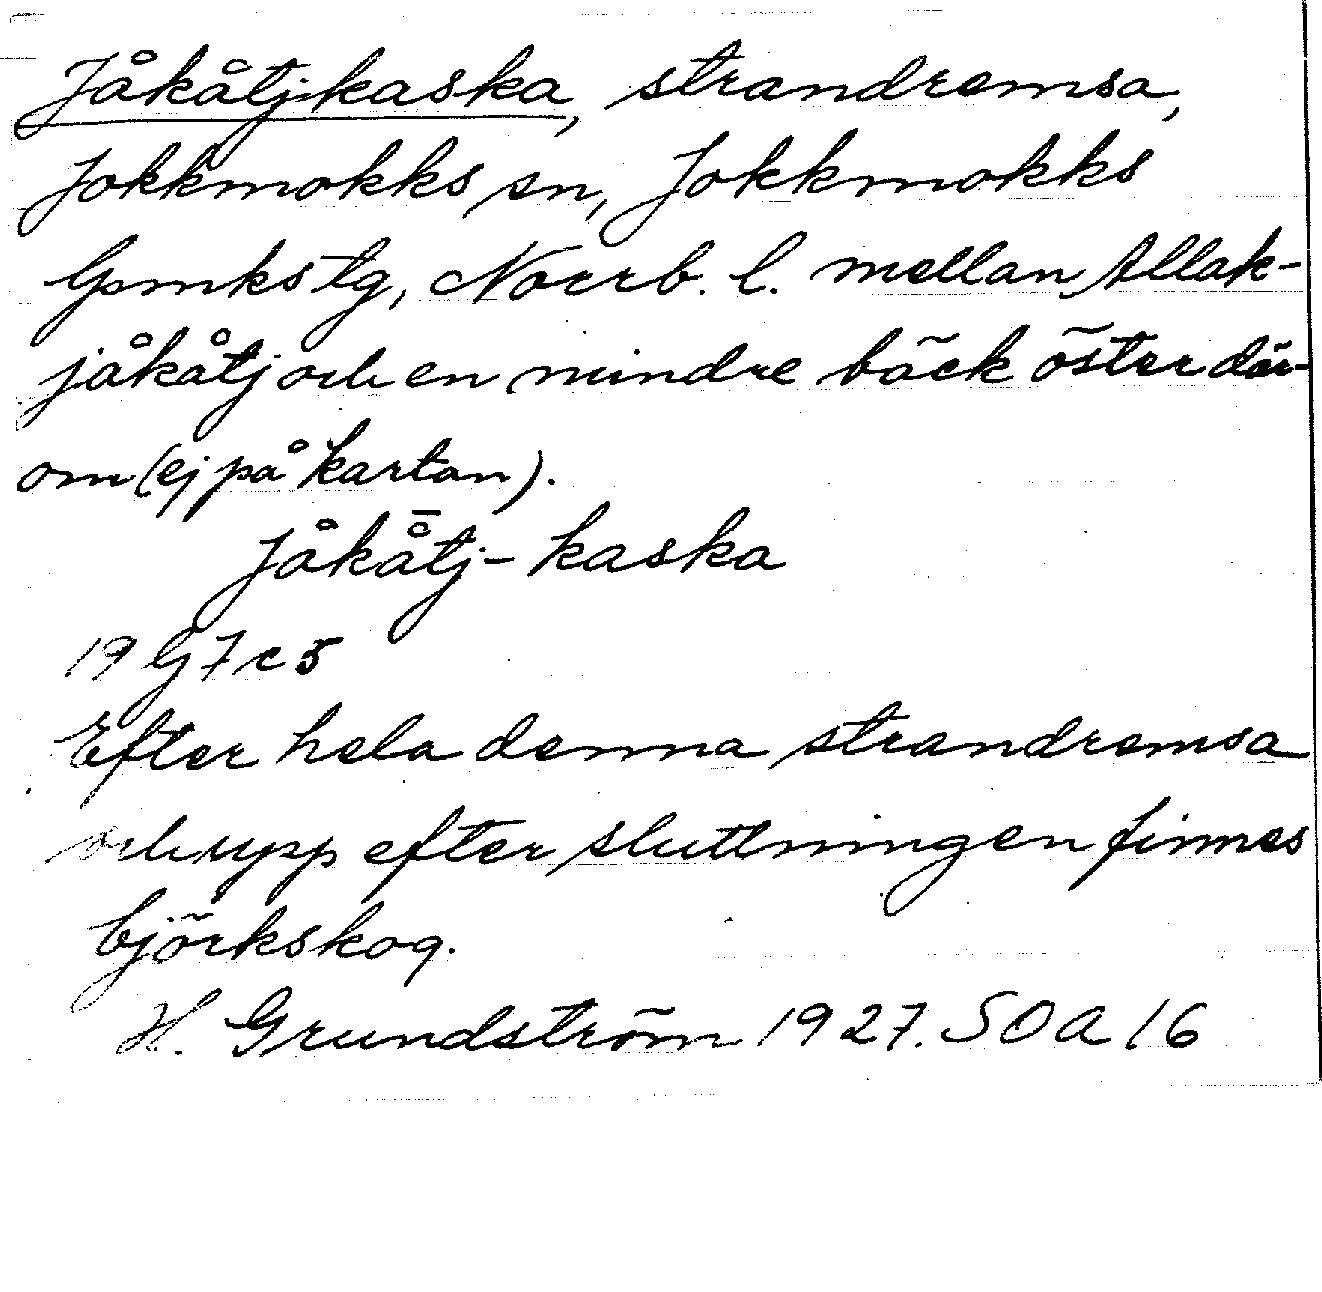 Jåkåtj-kaska, strandremsa,
Jokkmokks sn, Jokkmokks
lpmkstg, Norrb. l. mellan Allak-
jåkåtj och en mindre bäck öster där-
om (ej på kartan).
jåkå̄tj-kaska
19 G 7 c 5
Efter hela denna strandremsa
och upp efter sluttningen finnes
björkskog.
H. Grundström 1927. SOA 16